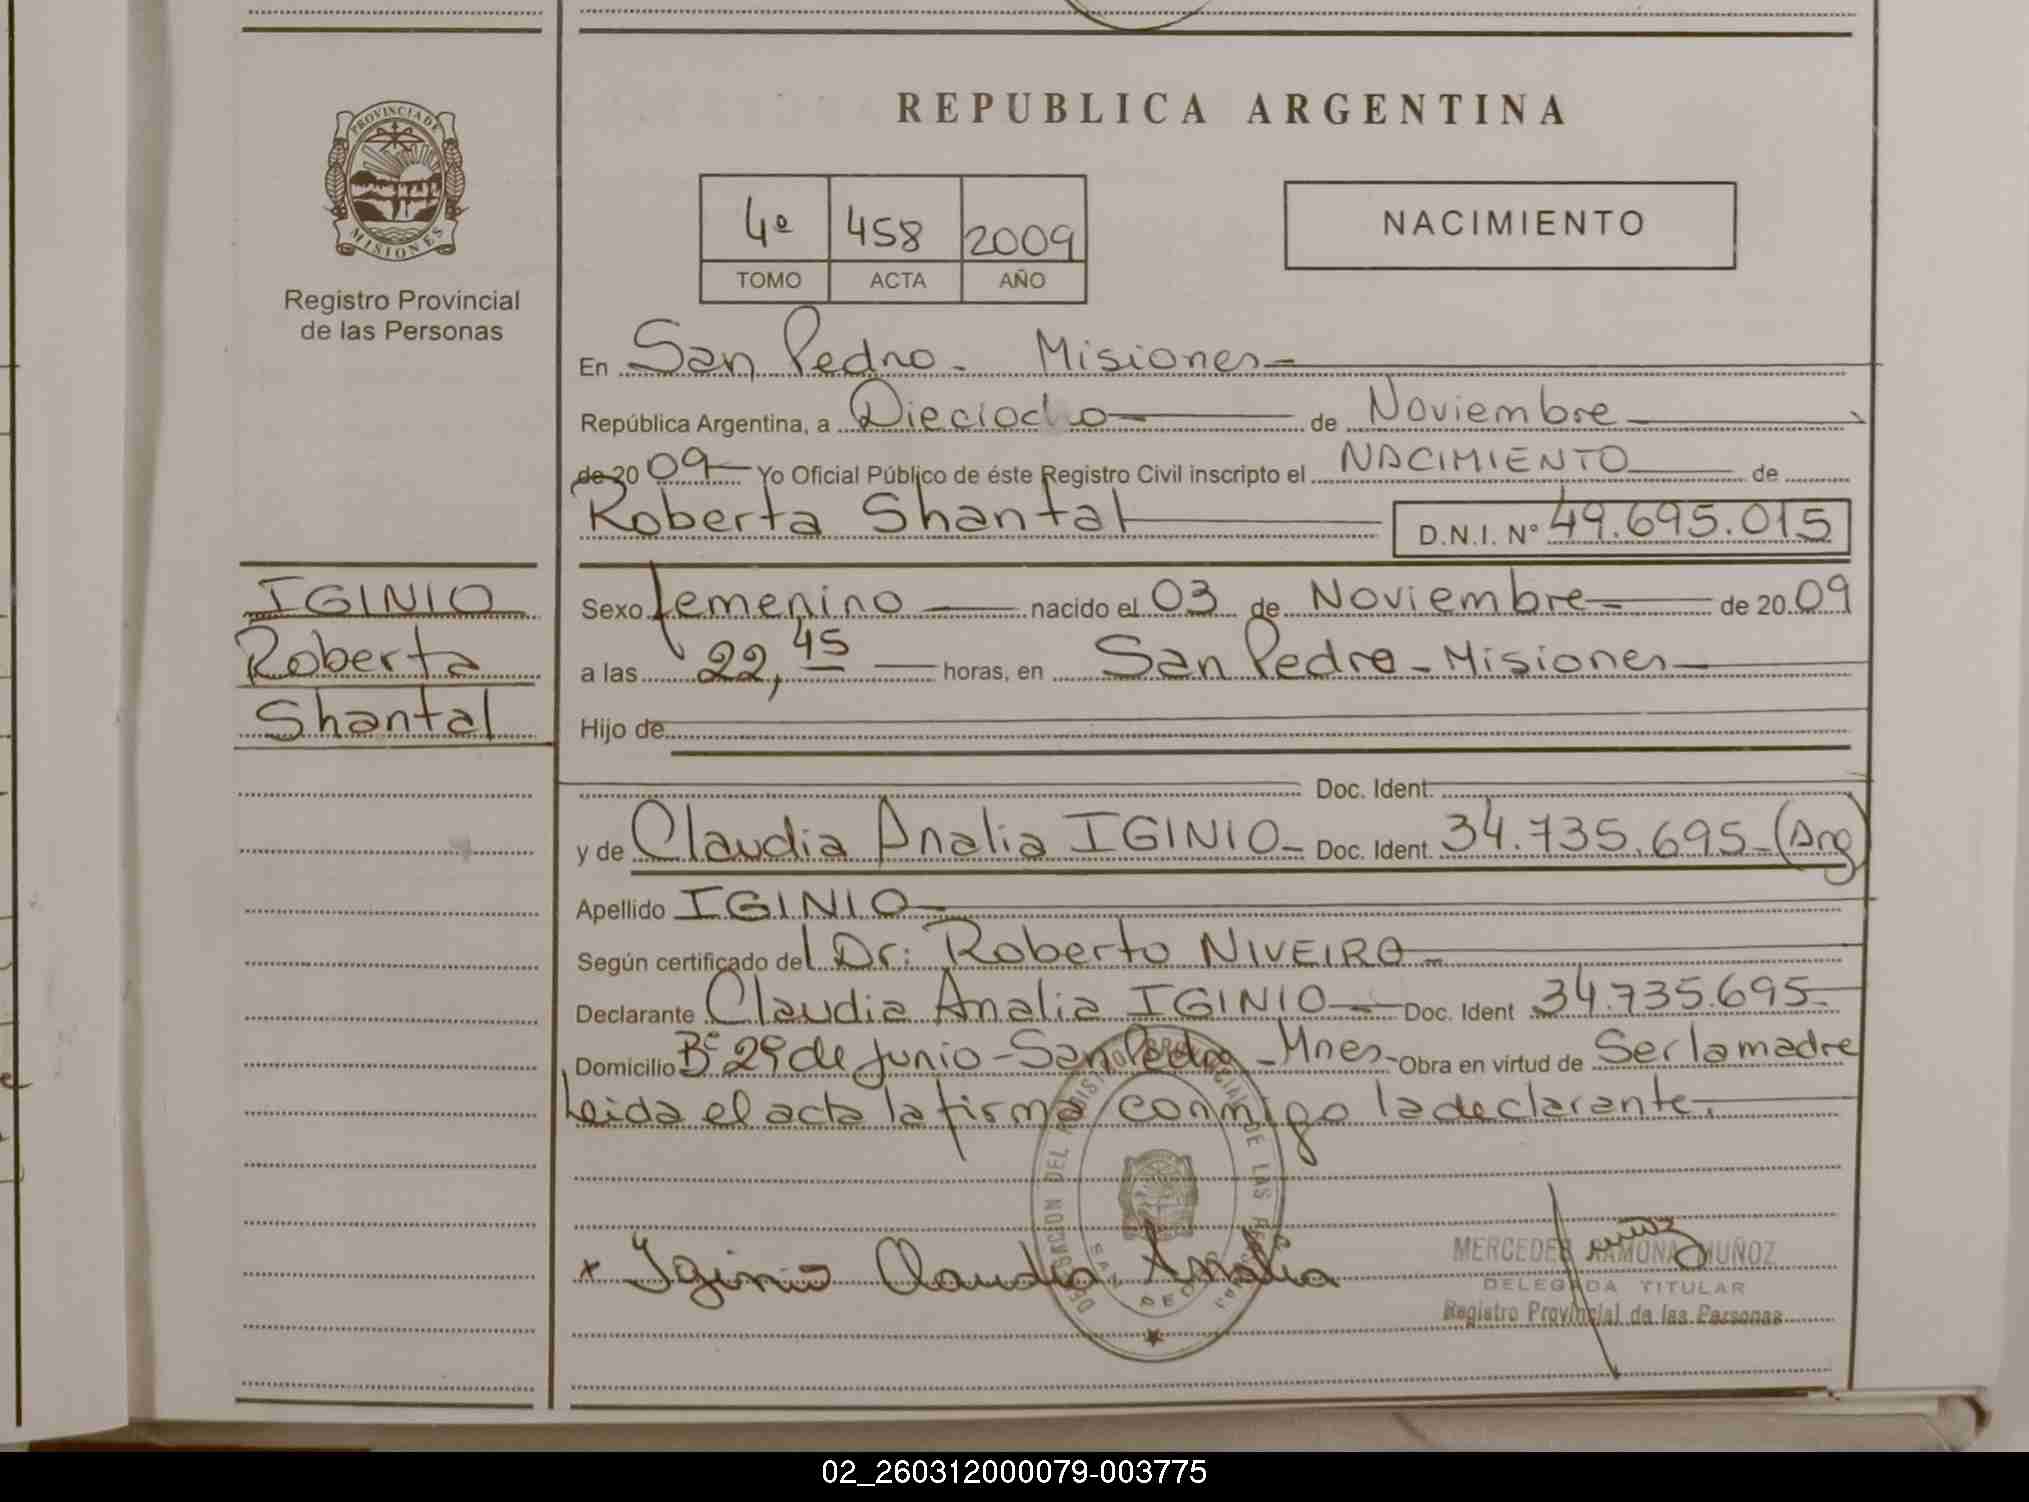 REPUBLICA ARGENTINA
PROVINCIA DE
MISIONES
Registro Provincial
de las Personas
4º 458 2009
TOMO ACTA AÑO
NACIMIENTO
En San Pedro - Misiones
República Argentina, a Dieciocho de Noviembre
de 20 09 Yo Oficial Público de éste Registro Civil inscripto el NACIMIENTO de
Roberta Shantal D.N.I. Nº 49.695.015
IGINIO
Roberta
Shantal
Sexo femenino nacido el 03 de Noviembre de 20 09
a las 22,45 horas, en San Pedro - Misiones
Hijo de
Doc. Ident.
y de Claudia Analia IGINIO - Doc. Ident. 34.735.695 - (Arg)
Apellido IGINIO
Según certificado del Dr: Roberto NIVEIRO
Declarante Claudia Analia IGINIO Doc. Ident 34.735.695
Domicilio Bº 29 de Junio - San Pedro - Mnes - Obra en virtud de Ser la madre
Leida el acta la firma conmigo la declarante.
x Iginio Claudia Analia
DELEGACION DEL REGISTRO PROVINCIAL DE LAS PERSONAS
SAN PEDRO
MERCEDES RAMONA MUÑOZ
DELEGADA TITULAR
Registro Provincial de las Personas
02_260312000079-003775